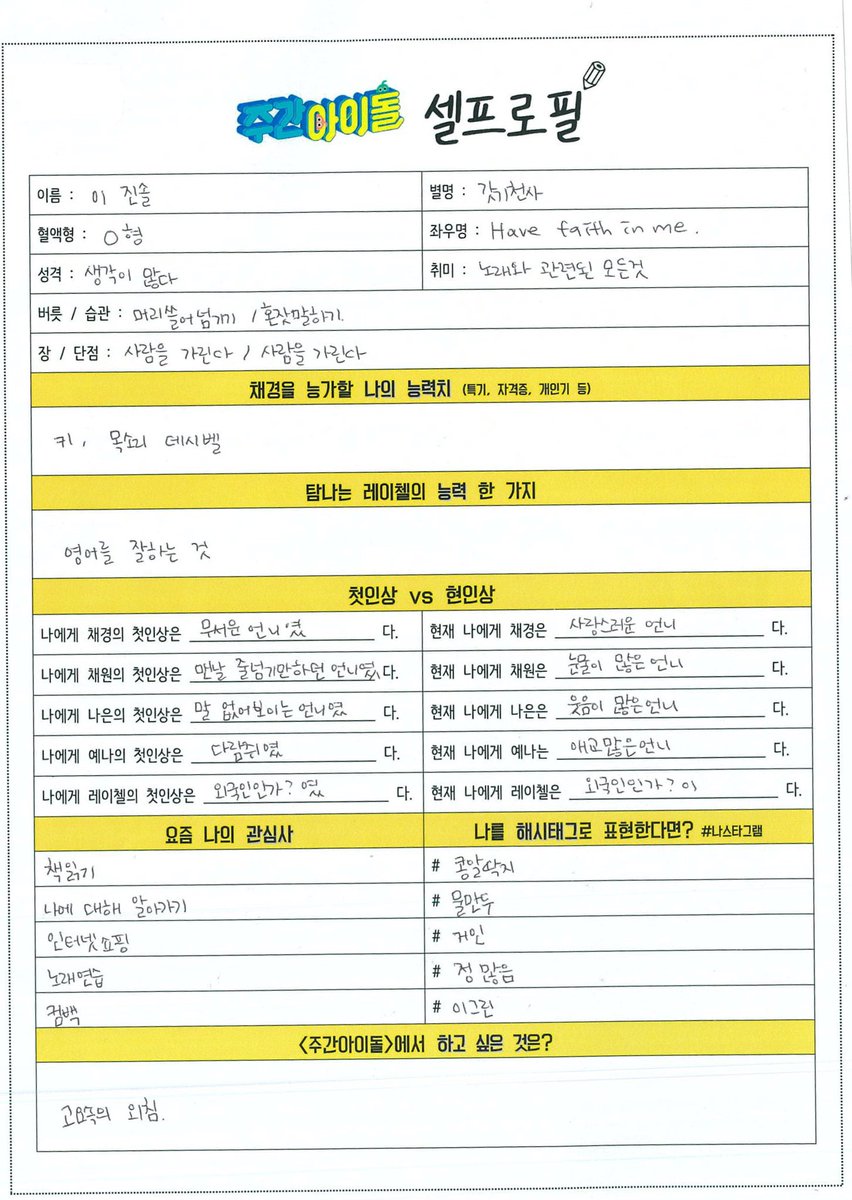 주간아이돌 셀프로필
이름 : 이 진솔
별명 : 갓기천사
혈액형 : O형
좌우명 : Have faith in me.
성격 : 생각이 많다
취미 : 노래와 관련된 모든것
버릇 / 습관 : 머리쓸어넘기기 / 혼잣말하기.
장 / 단점 : 사람을 가린다 / 사람을 가린다
채경을 능가할 나의 능력치 (특기, 자격증, 개인기 등)
키, 목소리 데시벨
탐나는 레이첼의 능력 한 가지
영어를 잘하는 것
첫인상 vs 현인상
나에게 채경의 첫인상은 무서운 언니였 다.
현재 나에게 채경은 사랑스러운 언니 다.
나에게 채원의 첫인상은 만날 줄넘기만하던 언니였 다.
현재 나에게 채원은 눈물이 많은 언니 다.
나에게 나은의 첫인상은 말 없어보이는 언니였 다.
현재 나에게 나은은 웃음이 많은언니 다.
나에게 예나의 첫인상은 다람쥐였 다.
현재 나에게 예나는 애교많은언니 다.
나에게 레이첼의 첫인상은 외국인인가? 였 다.
현재 나에게 레이첼은 외국인인가? 이 다.
요즘 나의 관심사
나를 해시태그로 표현한다면? #나스타그램
책읽기
# 콩알딱지
나에 대해 알아가기
# 물만두
인터넷쇼핑
# 거인
노래연습
# 정 많음
컴백
# 이그린
<주간아이돌>에서 하고 싶은 것은?
고요속의 외침.